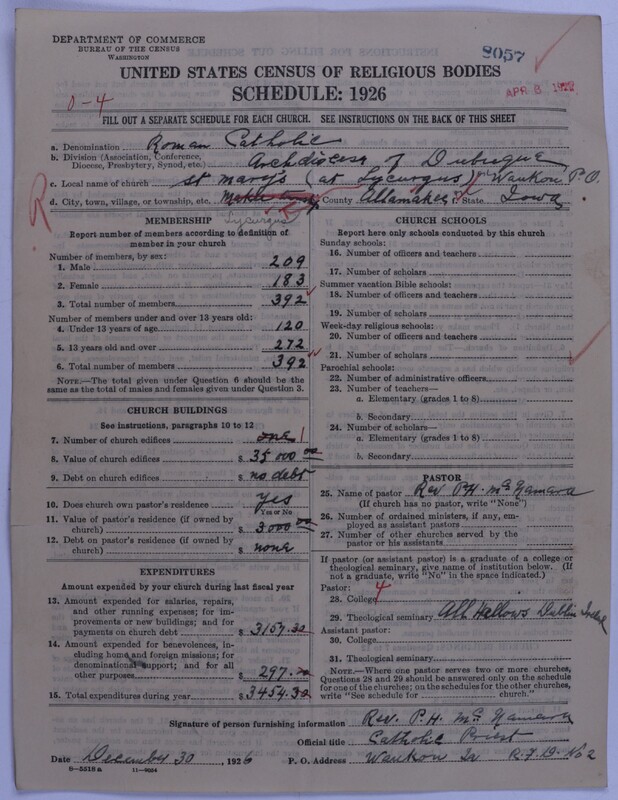 DEPARTMENT OF COMMERCE
BUREAU OF THE CENSUS
WASHINGTON
8057
APR 8 1922
UNITED STATES CENSUS OF RELIGIOUS BODIES
SCHEDULE: 1926
0-4
FILL OUT A SEPARATE SCHEDULE FOR EACH CHURCH. SEE INSTRUCTIONS ON THE BACK OF THIS SHEET
a. Denomination Roman Catholic
b. Division (Association, Conference, Diocese, Presbytery, Synod, etc.) Archdiocese of Dubuque
c. Local name of church St Mary's (at Lycurgus) Waukon P.O.
d. City, town, village, or township, etc. County Allamakee State Iowa
Lycurgus
R
MEMBERSHIP
Report number of members according to definition of
member in your church
Number of members, by sex:
1. Male 209
2. Female 183
3. Total number of members 392
Number of members under and over 13 years old:
4. Under 13 years of age 120
5. 13 years old and over 272
6. Total number of members 392
NOTE.—The total given under Question 6 should be
the same as the total of males and females given under Question 3.
CHURCH BUILDINGS
See instructions, paragraphs 10 to 12
7. Number of church edifices one 1
8. Value of church edifices $ 35000 00
9. Debt on church edifices $ no debt
10. Does church own pastor's residence yes
Yes or No
11. Value of pastor's residence (if owned by
church) $ 3000 00
12. Debt on pastor's residence (if owned by
church) $ none
EXPENDITURES
Amount expended by your church during last fiscal year
13. Amount expended for salaries, repairs,
and other running expenses; for im-
provements or new buildings; and for
payments on church debt $ 3157.32
14. Amount expended for benevolences, in-
cluding home and foreign missions; for
denominational support; and for all
other purposes $ 297.
15. Total expenditures during year $ 3454.32
CHURCH SCHOOLS
Report here only schools conducted by this church
Sunday schools:
16. Number of officers and teachers
17. Number of scholars
Summer vacation Bible schools:
18. Number of officers and teachers
19. Number of scholars
Week-day religious schools:
20. Number of officers and teachers
21. Number of scholars
Parochial schools:
22. Number of administrative officers
23. Number of teachers—
a. Elementary (grades 1 to 8)
b. Secondary
24. Number of scholars—
a. Elementary (grades 1 to 8)
b. Secondary
PASTOR
25. Name of pastor Rev P.H. McNamara
(If church has no pastor, write "None")
26. Number of ordained ministers, if any, em-
ployed as assistant pastors
27. Number of other churches served by the
pastor or his assistants
If pastor (or assistant pastor) is a graduate of a college or
theological seminary, give name of institution below. (If
not a graduate, write "No" in the space indicated.)
Pastor:
28. College 4
29. Theological seminary All Hallows Dublin Ireland
Assistant pastor:
30. College
31. Theological seminary
NOTE.—Where one pastor serves two or more churches,
Questions 28 and 29 should be answered only on the schedule
for one of the churches; on the schedules for the other churches,
write "See schedule for church."
Signature of person furnishing information Rev. P.H. McNamara
Official title Catholic Priest
Date December 30, 1926 P. O. Address Waukon Ia R.F.D. No 2
8-5518 a 11-9024